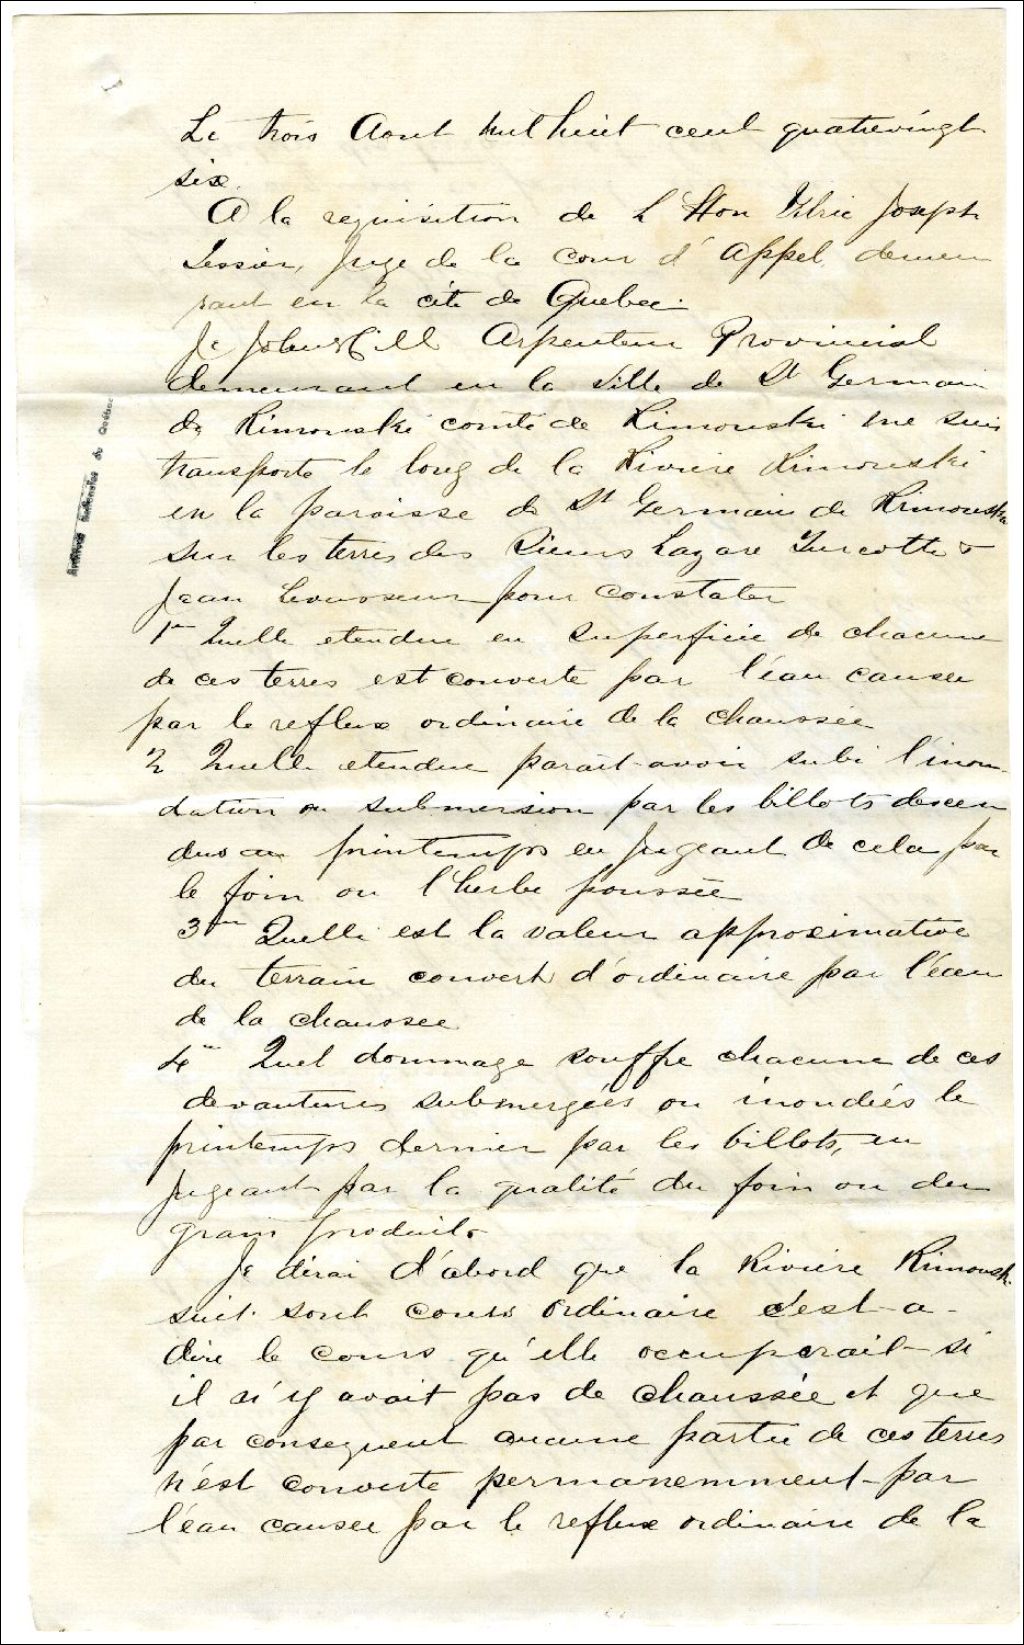 Le trois Aout mil huit cent quatrevingt
six.
A la requisition de L'Hon Ulric Joseph
Tessier, Juge de la Cour d'Appel demeu
rant en la cité de Quebec.
Je John Hill Arpenteur Provincial
demeurant en la ville de St Germain
de Rimouski comté de Rimouski me suis
transporte le long de la Riviere Rimouski
en la paroisse de St Germain de Rimouski
sur les terres des Sieurs Lazare Turcotte &
Jean Levasseur pour constater
1er Quelle etendue en superficie de chacune
de ces terres est couverte par l'éau causee
par le reflux ordinaire de la chaussée
2 Quelle etendue parait avoir subi l'inon-
dation ou submersion par les billots descen
dus au printemps en jugeant de cela par
le foin ou l'herbe poussée
3me Quelle est la valeur approximative
du terrain couvert d'ordinaire par l'éau
de la chaussee
4me Quel dommage souffre chacune de ces
devantures submergées ou inondées le
printemps dernier par les billots, en
jugeant par la qualité du foin ou du
grain produit.
Je dirai d'abord que la Riviere Rimouski
suit sont cours ordinaire c'est-a-
dire le cours qu'elle occuperait si
il n'y avait pas de chaussée et que
par consequent aucune partie de ces terres
n'est couverte permanemment par
l'éau causee par le reflux ordinaire de la
Archives Nationales du Québec